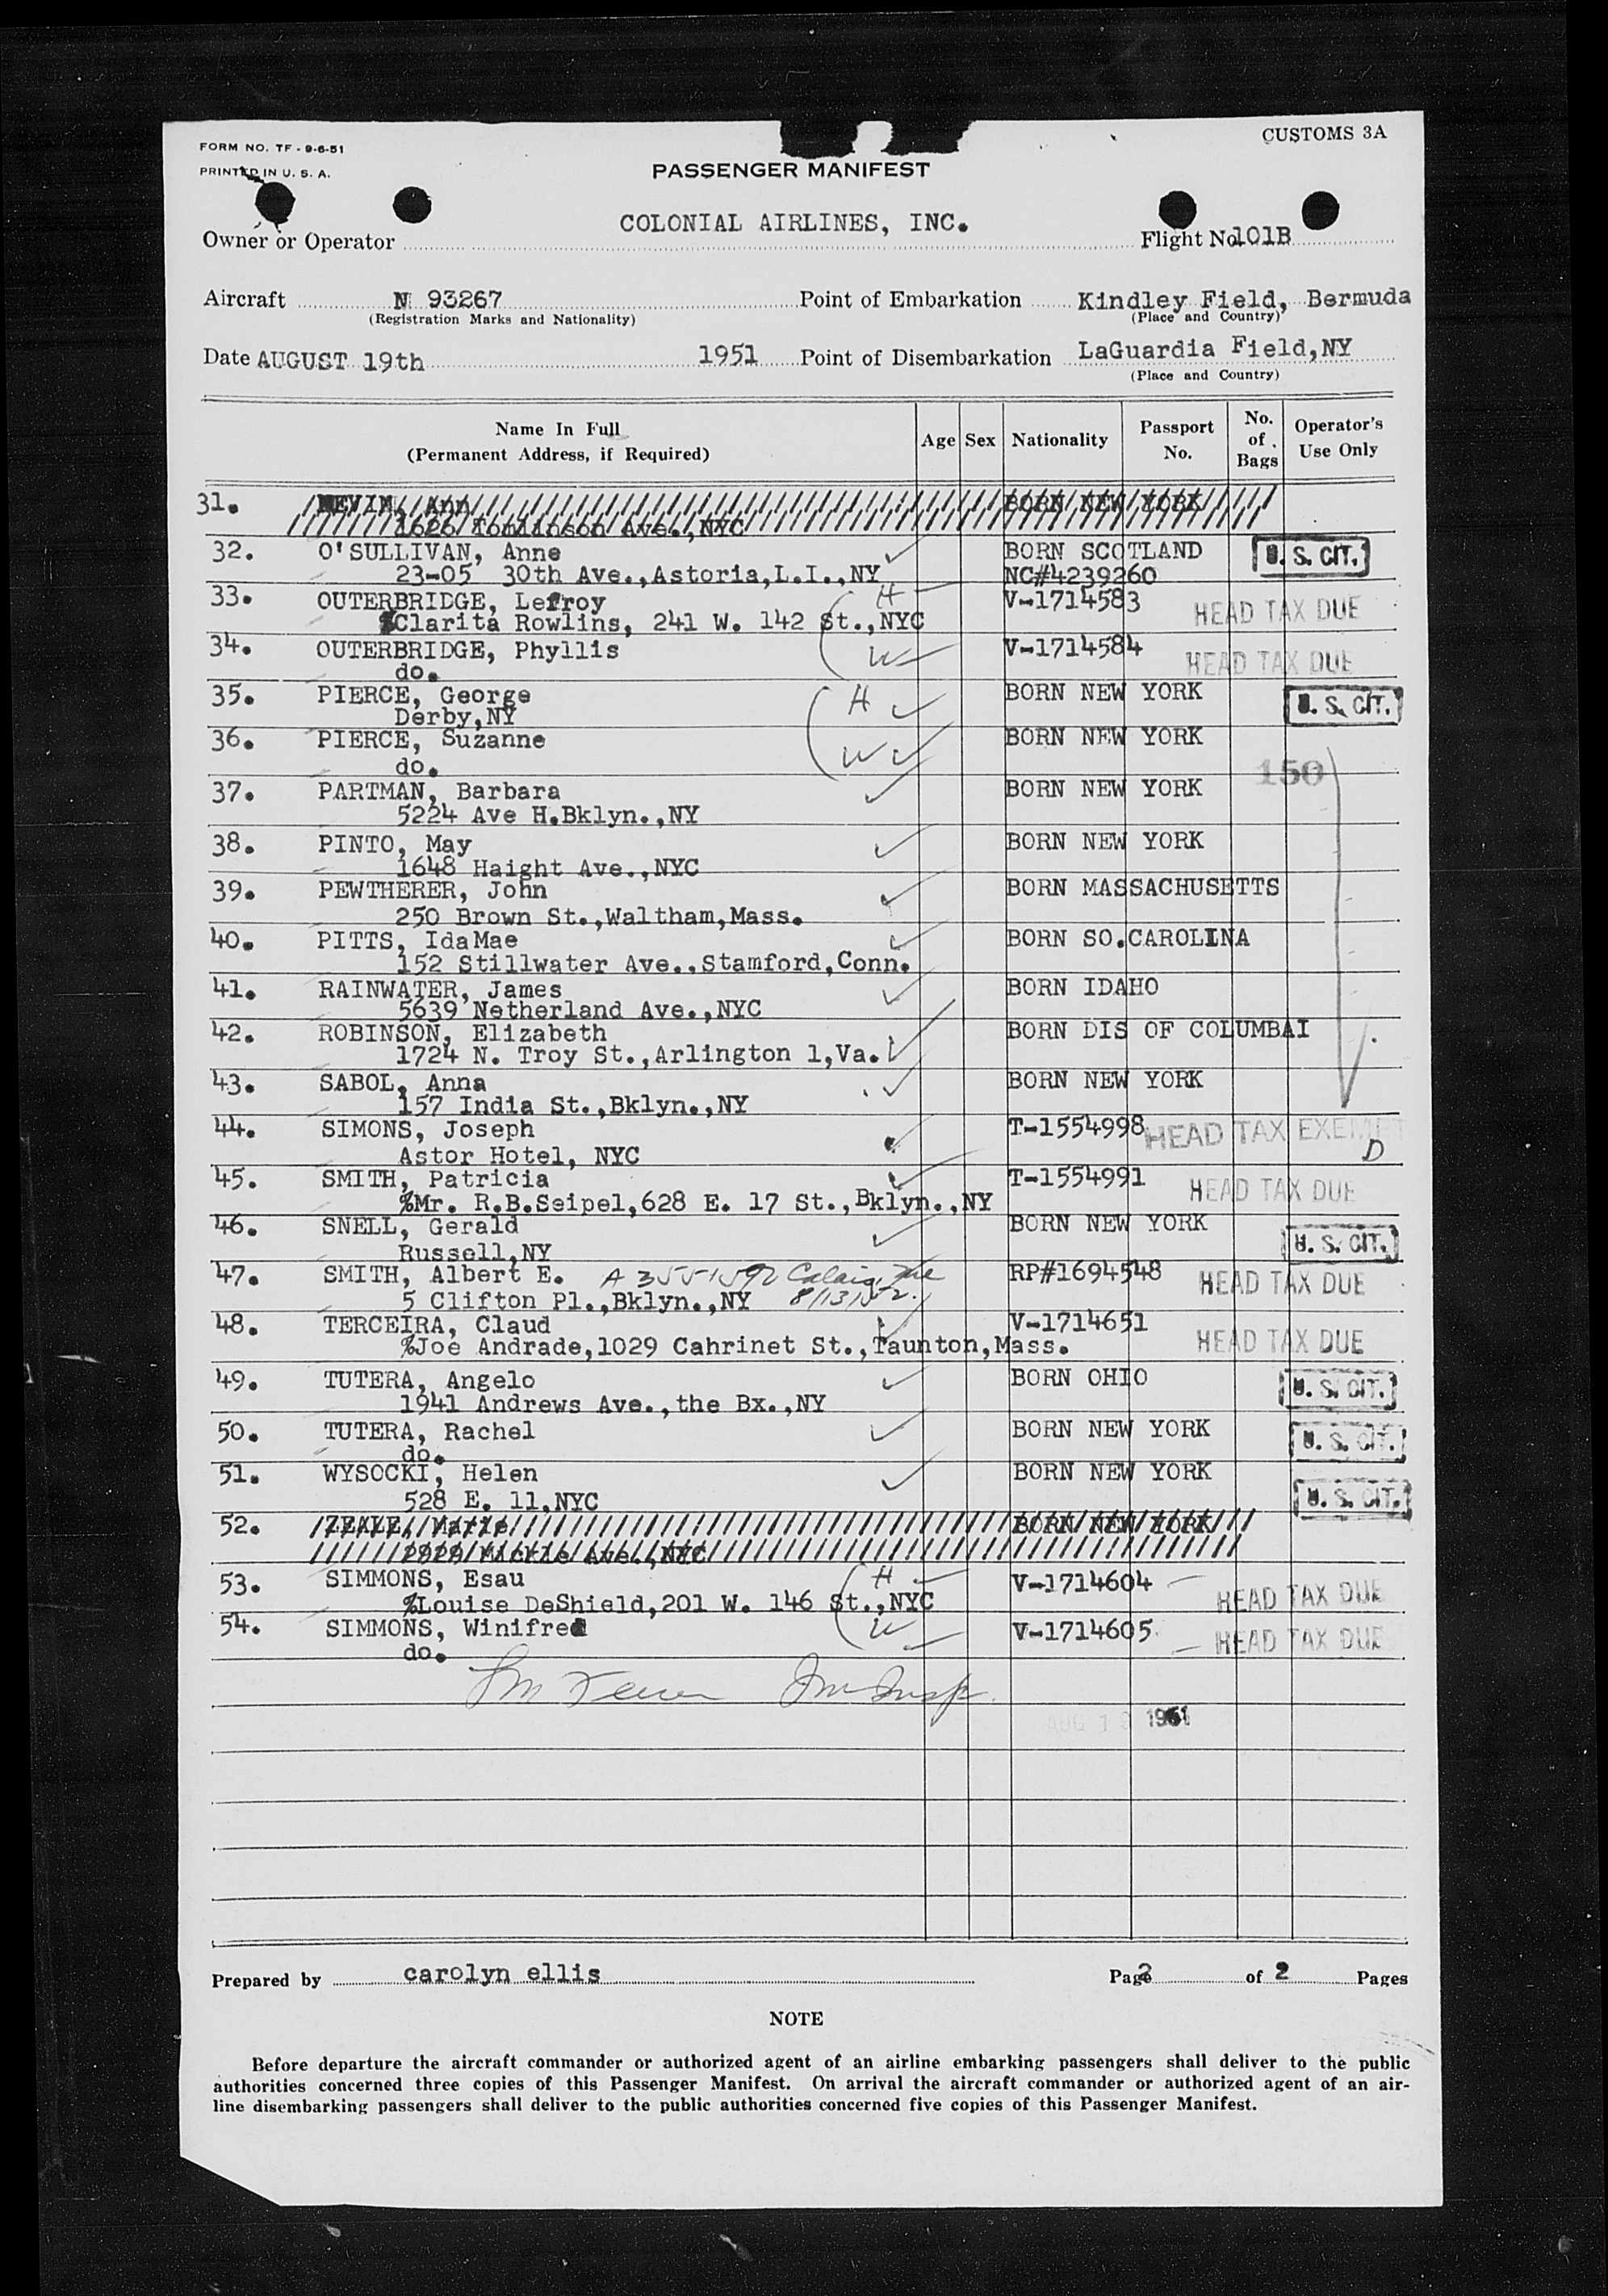 FORM NO. TF - 9-6-51
CUSTOMS 3A
PRINTED IN U. S. A.
PASSENGER MANIFEST
COLONIAL AIRLINES, INC.
Owner or Operator
Flight No. 101B
Aircraft N 93267 Point of Embarkation Kindley Field, Bermuda
(Registration Marks and Nationality) (Place and Country)
Date AUGUST 19th 1951 Point of Disembarkation LaGuardia Field,NY
(Place and Country)
Name In Full
(Permanent Address, if Required)
Age Sex Nationality
Passport No.
No. of Bags
Operator's Use Only
31. NEVIM, Ann BORN NEW YORK
1626 Tomlinson Ave.,NYC
32. O'SULLIVAN, Anne BORN SCOTLAND U. S. CIT.
23-05 30th Ave.,Astoria,L.I.,NY NC#4239260
33. OUTERBRIDGE, Lefroy H V-1714583 HEAD TAX DUE
%Clarita Rowlins, 241 W. 142 St.,NYC
34. OUTERBRIDGE, Phyllis W V-1714584 HEAD TAX DUE
do.
35. PIERCE, George H BORN NEW YORK U. S. CIT.
Derby,NY
36. PIERCE, Suzanne W BORN NEW YORK
do.
150
37. PARTMAN, Barbara BORN NEW YORK
5224 Ave H.Bklyn.,NY
38. PINTO, May BORN NEW YORK
1648 Haight Ave.,NYC
39. PEWTHERER, John BORN MASSACHUSETTS
250 Brown St.,Waltham,Mass.
40. PITTS, IdaMae BORN SO.CAROLINA
152 Stillwater Ave.,Stamford,Conn.
41. RAINWATER, James BORN IDAHO
5639 Netherland Ave.,NYC
42. ROBINSON, Elizabeth BORN DIS OF COLUMBAI
1724 N. Troy St.,Arlington 1,Va.
43. SABOL, Anna BORN NEW YORK
157 India St.,Bklyn.,NY
44. SIMONS, Joseph T-1554998 HEAD TAX EXEMPT
Astor Hotel, NYC D
45. SMITH, Patricia T-1554991 HEAD TAX DUE
%Mr. R.B.Seipel,628 E. 17 St.,Bklyn.,NY
46. SNELL, Gerald BORN NEW YORK U. S. CIT.
Russell,NY
47. SMITH, Albert E. A 3551592 Calais, Me RP#1694548 HEAD TAX DUE
5 Clifton Pl.,Bklyn.,NY 8/13/52.
48. TERCEIRA, Claud V-1714651 HEAD TAX DUE
%Joe Andrade,1029 Cahrinet St.,Taunton,Mass.
49. TUTERA, Angelo BORN OHIO U. S. CIT.
1941 Andrews Ave.,the Bx.,NY
50. TUTERA, Rachel BORN NEW YORK U. S. CIT.
do.
51. WYSOCKI, Helen BORN NEW YORK U. S. CIT.
528 E. 11,NYC
52. ZEALE, Marie BORN NEW YORK
2929 Mickle Ave.,NYC
53. SIMMONS, Esau H V-1714604 HEAD TAX DUE
%Louise DeShield,201 W. 146 St.,NYC
54. SIMMONS, Winifred W V-1714605 HEAD TAX DUE
do.
Imm Insp.
AUG 19 1951
Prepared by carolyn ellis Page 2 of 2 Pages
NOTE
Before departure the aircraft commander or authorized agent of an airline embarking passengers shall deliver to the public
authorities concerned three copies of this Passenger Manifest. On arrival the aircraft commander or authorized agent of an air-
line disembarking passengers shall deliver to the public authorities concerned five copies of this Passenger Manifest.